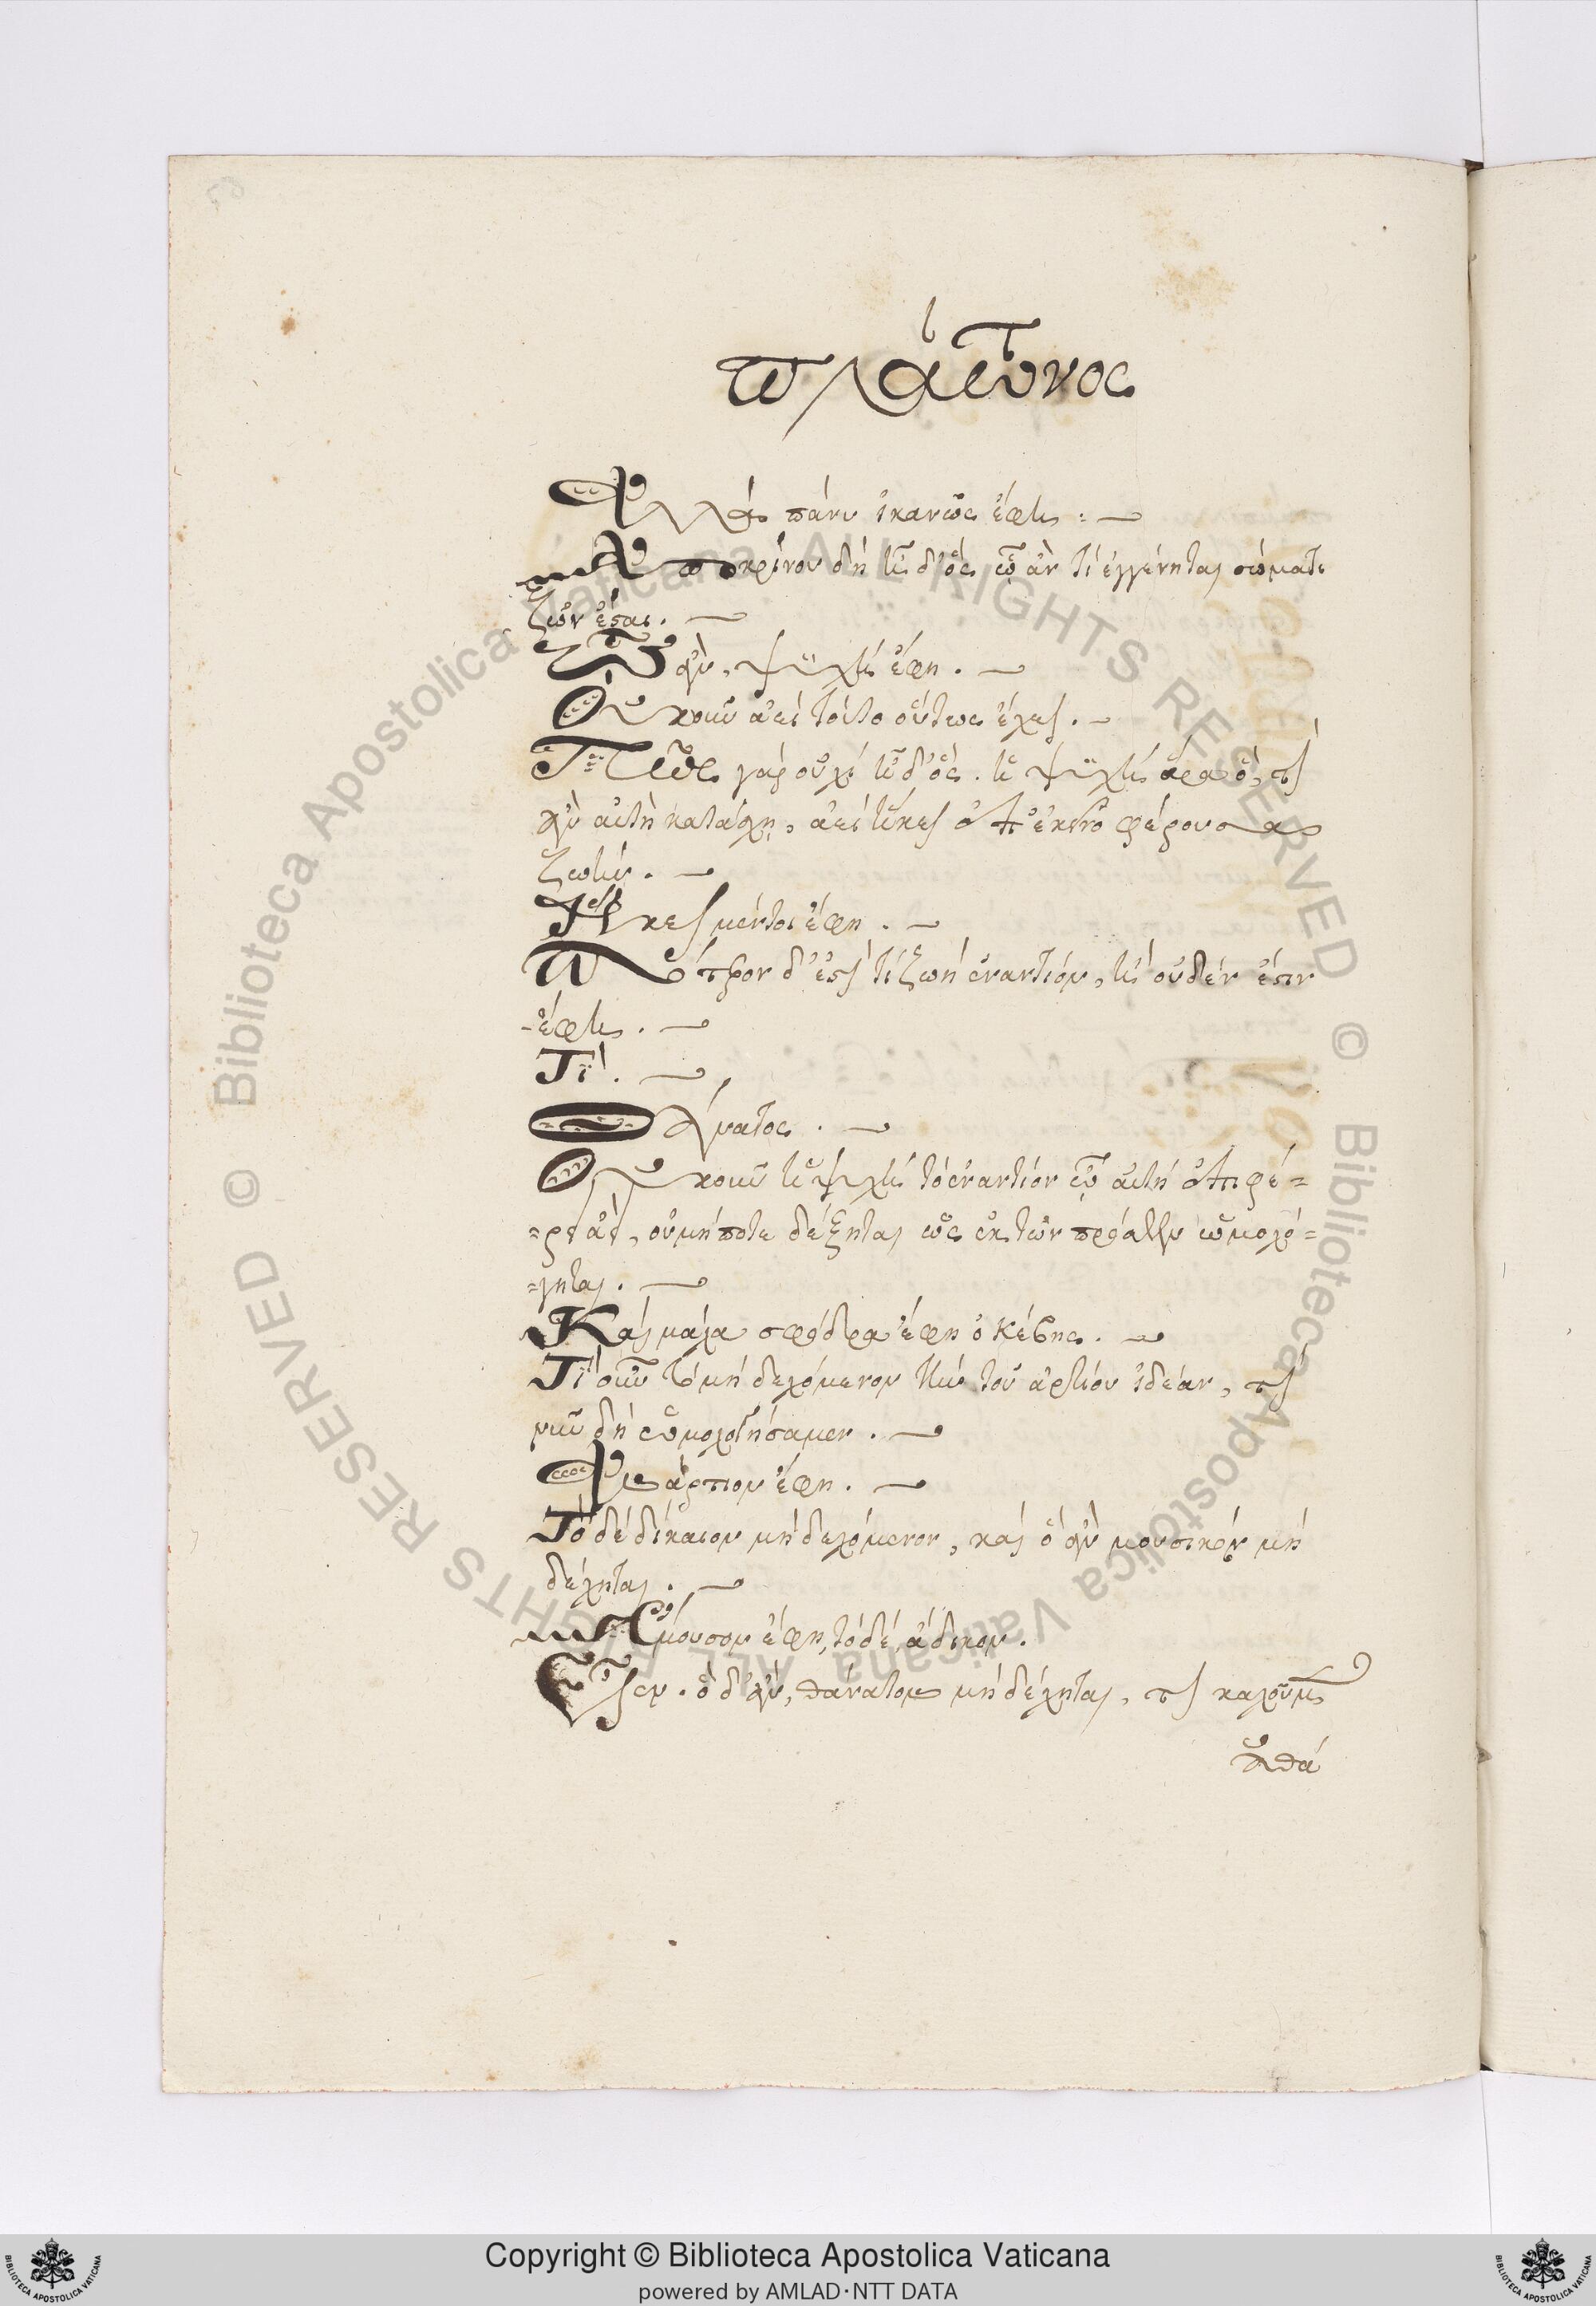 58
πλάτωνος
Ἀλλὰ πάνυ ἱκανῶς ἔφη :
Ἀποκρίνου δὴ ἦ δ' ὃς ᾧ ἂν τί ἐγγένηται σώματι
ζῶν ἔσται.
ᾯ ἂν, ψυχὴ ἔφη.
Οὐκοῦν ἀεὶ τοῦτο οὕτως ἔχει.
Πῶς γὰρ οὐχὶ ἦ δ' ὅς. ἡ ψυχὴ ἄρα ὅ, τι
ἂν αὐτὴ κατάσχῃ, ἀεὶ ἥκει ἐπ' ἐκεῖνο φέρουσα
ζωήν.
Ἥκει μέντοι ἔφη.
Πότερον δ' ἐστὶ τί ζωῇ ἐναντίον, ἢ οὐδὲν ἔστιν
-ἔφη.
Τί.
Θάνατος.
Οὐκοῦν ἡ ψυχὴ τὸ ἐναντίον ᾧ αὐτὴ ἐπιφέ=
=ρει ἀεὶ, οὐ μήποτε δέξηται ὡς ἐκ τῶν πρόσθεν ὡμολό=
=γηται.
Καὶ μάλα σφόδρα ἔφη ὁ κέβης.
Τί οὖν τὸ μὴ δεχόμενον τὴν τοῦ ἀρτίου ἰδέαν, τί
νῦν δὴ ὠμολογήσαμεν.
Ἀνάρτιον ἔφη.
Τὸ δὲ δίκαιον μὴ δεχόμενον, καὶ ὃ ἂν μουσικὸν μὴ
δέχηται.
Ἄμουσον ἔφη, τὸ δὲ ἄδικον.
Εἶεν. ὃ δ' ἂν, θάνατον μὴ δέχηται, τί καλοῦμεν
ἀθά
Copyright © Biblioteca Apostolica Vaticana
powered by AMLAD·NTT DATA